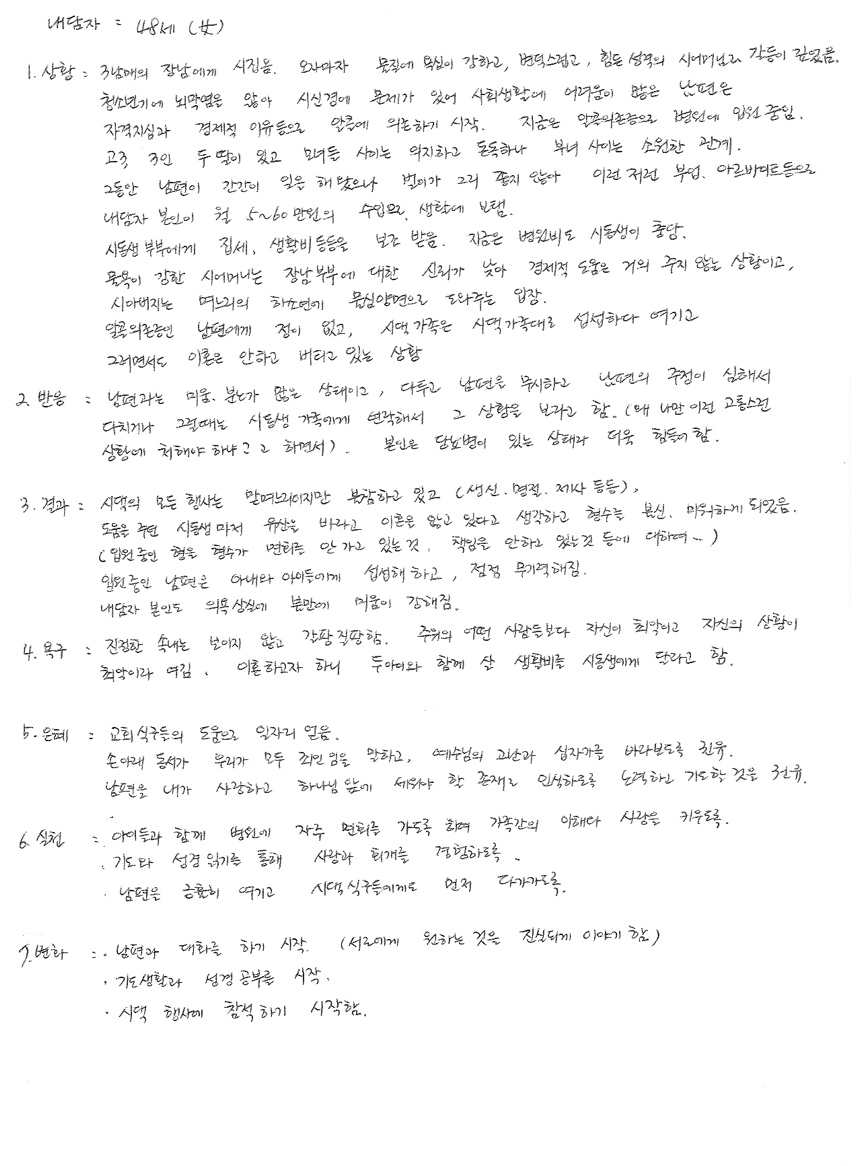 내담자 = 48세 (女)
1. 상황 = 3남매의 장남에게 시집옴. 오자마자 물질에 욕심이 강하고, 변덕스럽고, 힘든 성격의 시어머님과 갈등이 깊었음.
청소년기에 뇌막염을 앓아 시신경에 문제가 있어 사회생활에 어려움이 많은 남편은
자격지심과 경제적 이유등으로 알콜에 의존하기 시작. 지금은 알콜의존증으로 병원에 입원 중임.
고3 중3인 두 딸이 있고 모녀들 사이는 의지하고 돈독하나 부녀 사이는 소원한 관계.
그동안 남편이 간간이 일은 해 왔으나 벌이가 그리 좋지 않아 이런 저런 부업. 아르바이트등으로
내담자 본인이 월 5~60만원의 수입으로 생활에 보탬.
시동생 부부에게 집세, 생활비등등을 보조 받음. 지금은 병원비도 시동생이 충당.
물욕이 강한 시어머니는 장남부부에 대한 신뢰가 낮아 경제적 도움은 거의 주지 않는 상황이고,
시아버지는 며느리의 하소연에 물심양면으로 도와주는 입장.
알콜의존증인 남편에게 정이 없고, 시댁 가족은 시댁가족대로 섭섭하다 여기고
그러면서도 이혼은 안하고 버티고 있는 상황
2. 반응 = 남편과는 미움. 분노가 많은 상태이고, 다투고 남편을 무시하고 남편의 주정이 심해서
다치거나 그럴때는 시동생 가족에게 연락해서 그 상황을 보라고 함. (왜 나만 이런 고통스런
상황에 처해야 하냐고 하면서). 본인은 당뇨병이 있는 상태라 더욱 힘들어함.
3. 결과 = 시댁의 모든 행사는 맏며느리이지만 불참하고 있고 (생신. 명절. 제사 등등),
도움을 주던 시동생 마저 유산을 바라고 이혼을 않고 있다고 생각하고 형수를 불신. 미워하게 되었음.
(입원 중인 형을 형수가 면회를 안 가고 있는 것. 책임을 안하고 있는 것 등에 대하여~)
입원중인 남편은 아내와 아이들에게 섭섭해 하고, 점점 무기력해짐.
내담자 본인도 의욕상실에 불만에 미움이 강해짐.
4. 욕구 = 진정한 속내는 보이지 않고 갈팡질팡함. 주위의 어떤 사람들보다 자신이 최악이고 자신의 상황이
최악이라 여김. 이혼하고자 하니 두아이와 함께 살 생활비를 시동생에게 달라고 함.
5. 은혜 = 교회식구들의 도움으로 일자리 얻음.
손아래 동서가 우리가 모두 죄인임을 말하고, 예수님의 고난과 십자가를 바라보도록 권유.
남편을 내가 사랑하고 하나님 앞에 세워야 할 존재로 인식하도록 노력하고 기도할 것을 권유.
6. 실천 = 아이들과 함께 병원에 자주 면회를 가도록 하며 가족간의 이해와 사랑을 키우도록.
· 기도와 성경 읽기를 통해 사랑과 회개를 경험하도록.
· 남편을 긍휼히 여기고 시댁식구들에게도 먼저 다가가도록.
7. 변화 = · 남편과 대화를 하기 시작. (서로에게 원하는 것을 진실되게 이야기 함)
· 기도생활과 성경공부를 시작.
· 시댁 행사에 참석하기 시작함.